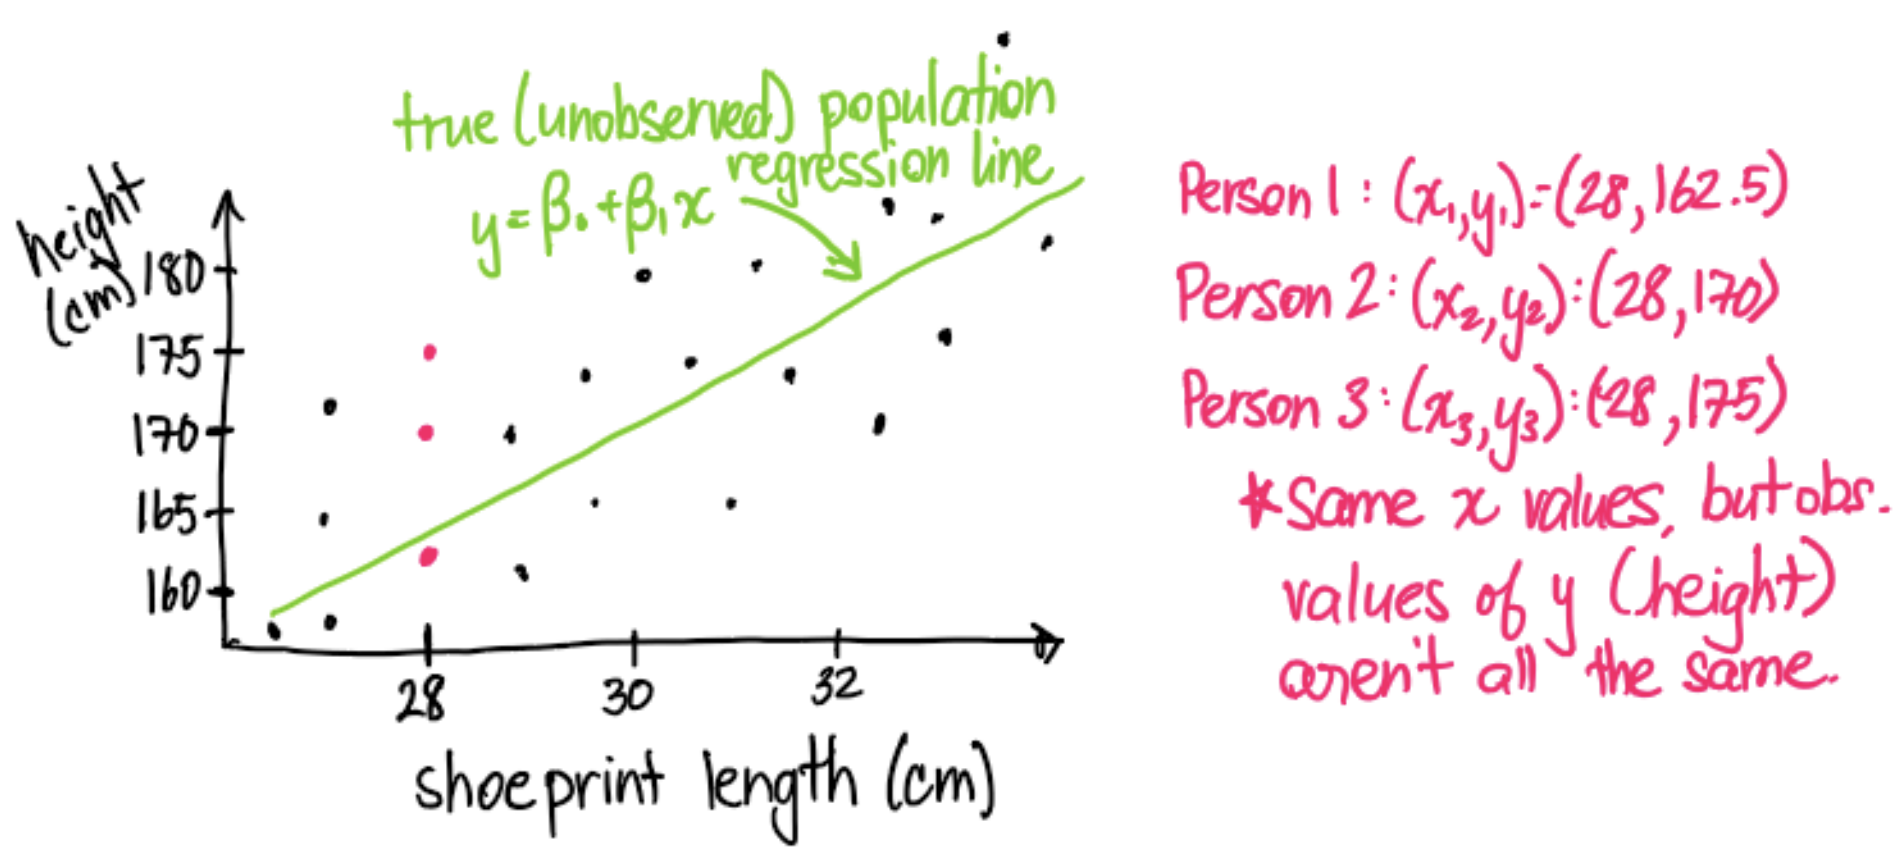 true (unobserved) population
regression line
y = β₀ + β₁x
height
(cm)
180
175
170
165
160
28
30
32
shoeprint length (cm)
Person 1 : (x₁,y₁)=(28,162.5)
Person 2: (x₂,y₂):(28,170)
Person 3: (x₃,y₃):(28,175)
*Same x values, but obs.
values of y (height)
aren't all the same.